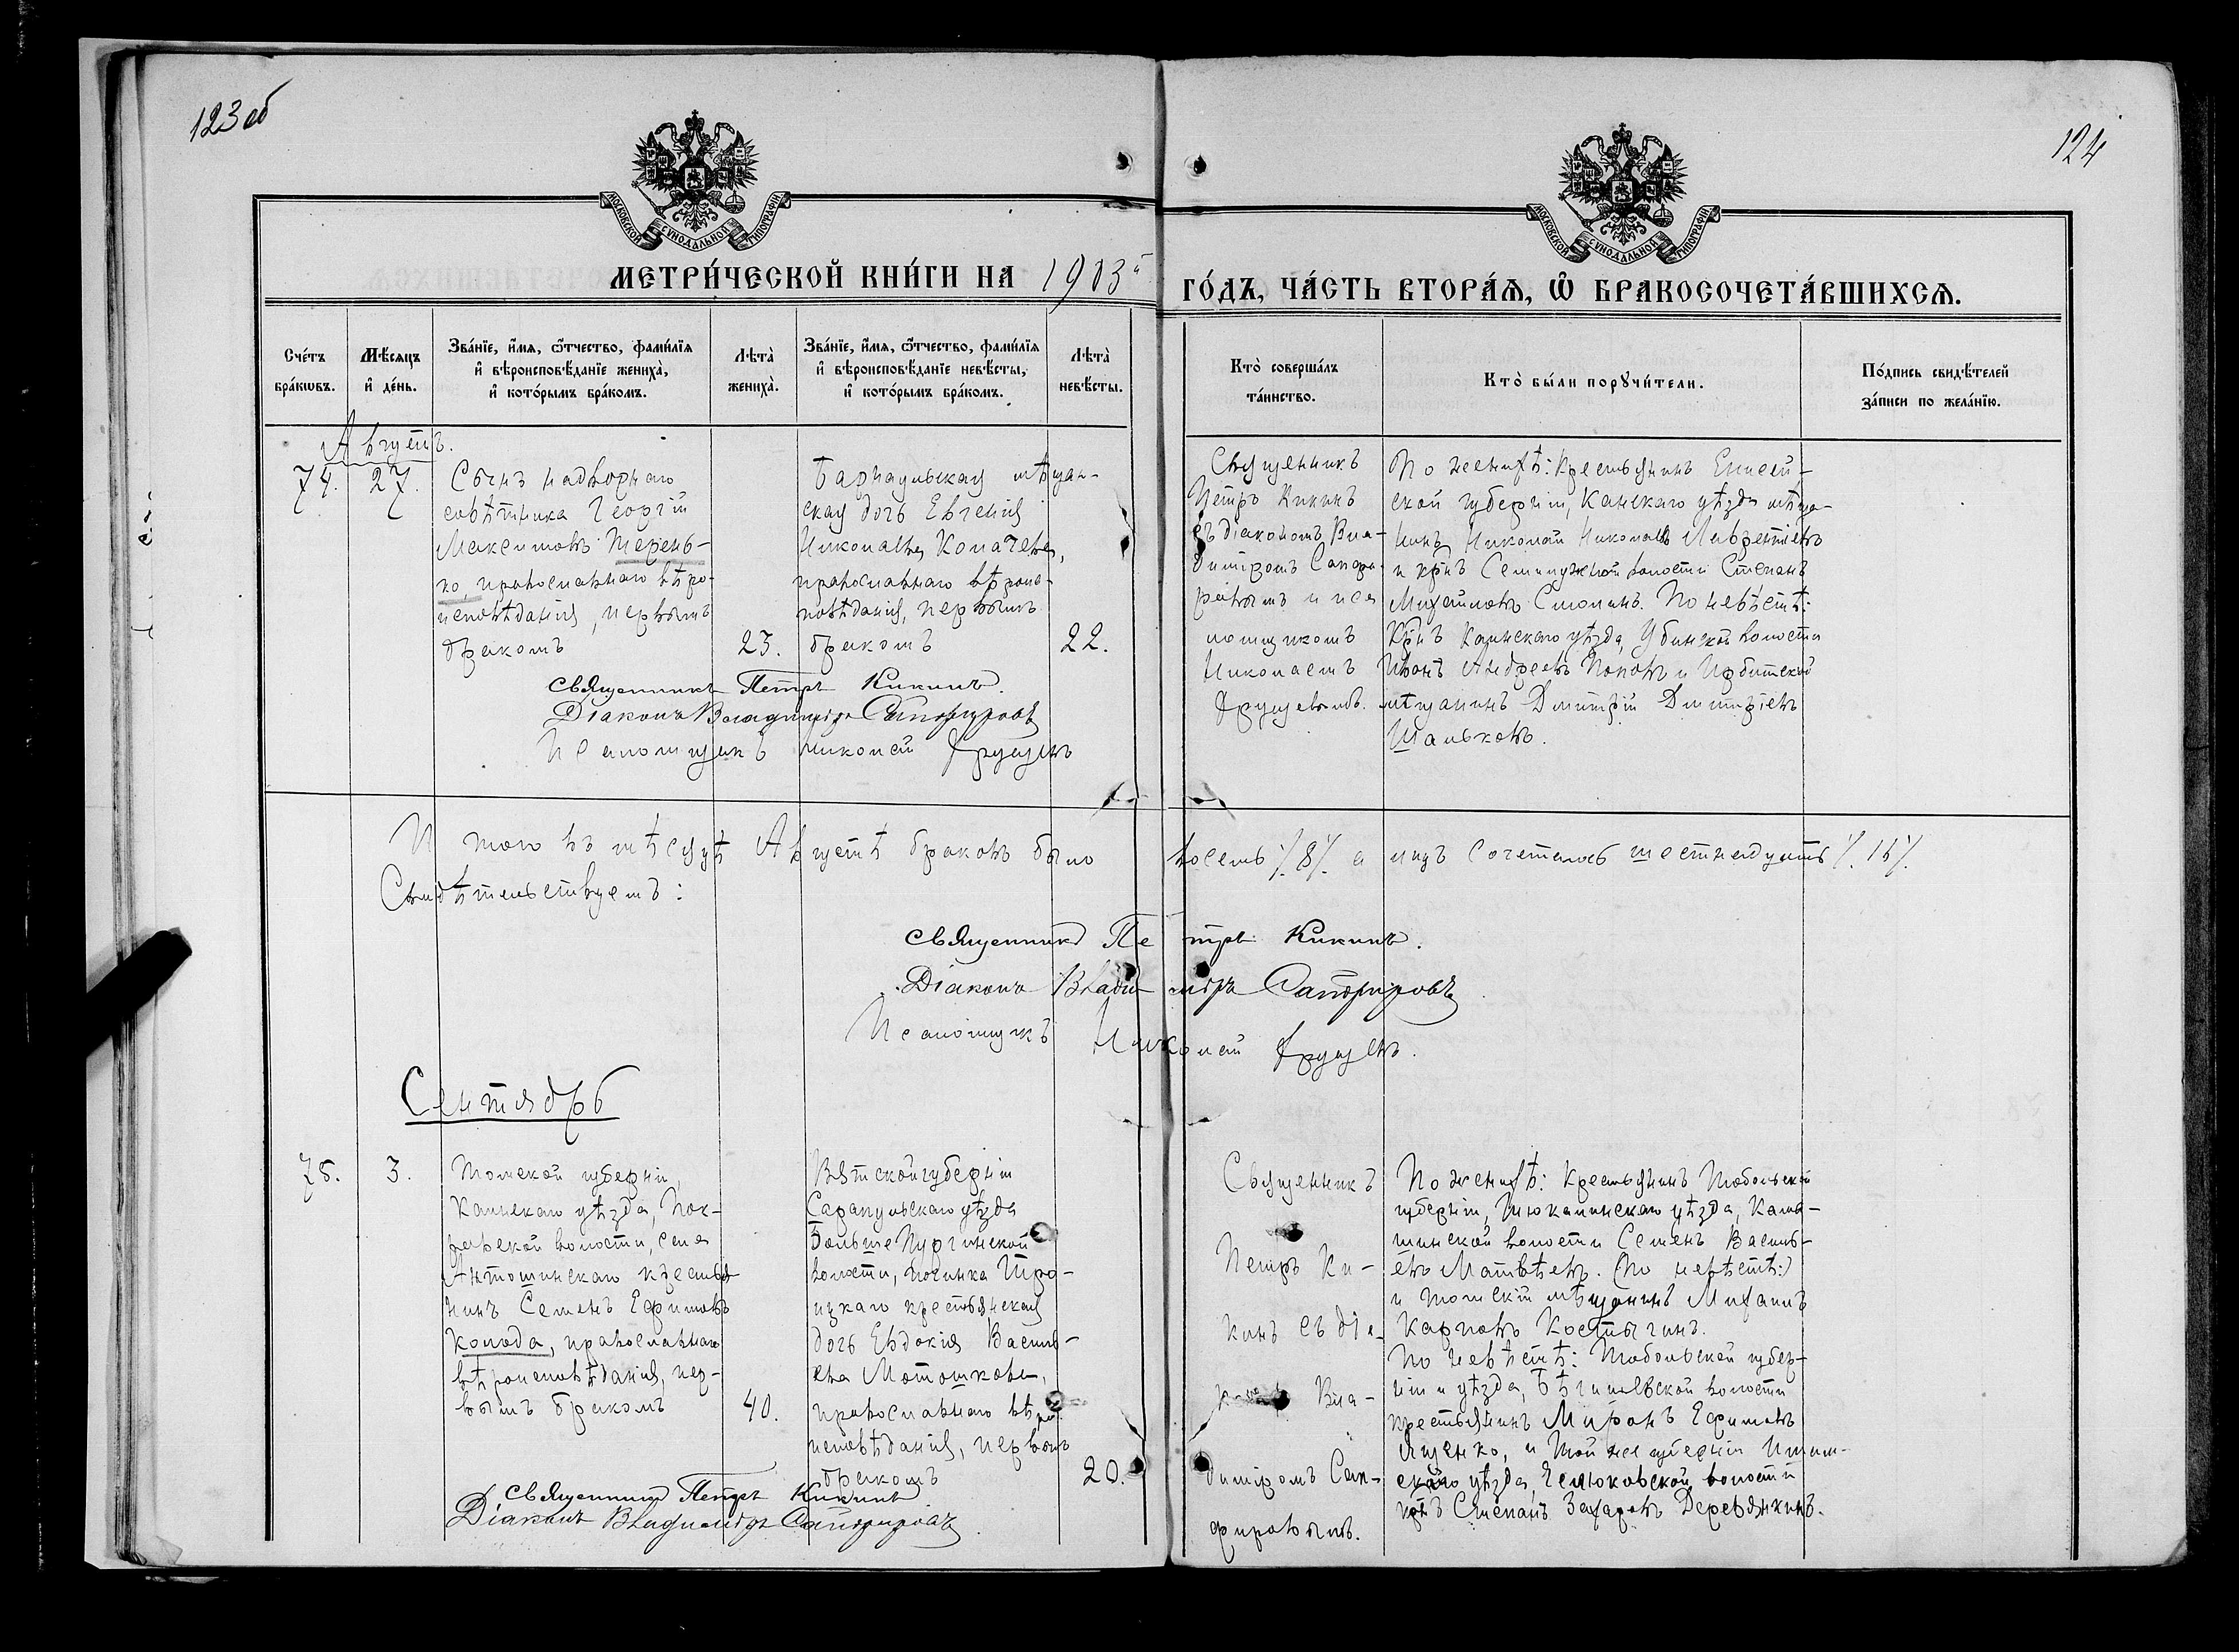 123 об
124
МОСКОВСКОЙ СѴНОДАЛЬНОЙ ТИПОГРАФІИ
МОСКОВСКОЙ СѴНОДАЛЬНОЙ ТИПОГРАФІИ
МЕТРИ́ЧЕСКОЙ КНИ́ГИ НА 1903й
ГО́ДЪ, ЧА́СТЬ ВТОРА́Ѧ, Ѡ҆ БРАКОСОЧЕТА́ВШИХСѦ.
Сче́тъ
бра́кѡвъ.
Мѣ́сяцъ
и҆ де́нь.
Зва́нїе, и҆́мя, ѻ҆́тчество, фами́лїя
и҆ вѣроисповѣ́данїе жениха̀,
и҆ кото́рымъ бра́комъ.
Лѣта̀
жениха̀.
Зва́нїе, и҆́мя, ѻ҆́тчество, фами́лїя
и҆ вѣроисповѣ́данїе невѣ́сты,
и҆ кото́рымъ бра́комъ.
Лѣта̀
невѣ́сты.
Кто̀ соверша́лъ
та́инство.
Кто̀ бы́ли порꙋчи́тели.
По́дпись свидѣ́телей
за́писи по жела́нїю.
Августъ.
74.
27.
Сынъ надворнаго
совѣтника Георгій
Максимовъ Терень-
ко, православнаго вѣро-
исповѣданія, первымъ
бракомъ
23.
Барнаульская мѣщан-
ская дочь Евгенія
Николаева Копачева,
православнаго вѣроис-
повѣданія, первымъ
бракомъ
22.
Священникъ
Петръ Кикинъ
съ діакономъ Вла-
диміромъ Сапфи-
ровымъ и пса
ломщикомъ
Николаемъ
По женихѣ: крестьянинъ Енисей-
ской губерніи, Канскаго уѣзда мѣща-
нинъ Николай Николаевъ Лаврентіевъ
и кр̃нъ Семилужной волости Степанъ
Михайловъ Смолинъ. По невѣстѣ:
Кр̃нъ Каинскаго уѣзда, Убинской волости
Иванъ Андреевъ Поповъ и Ирбитскій
мѣщанинъ Дмитрій Дмитріевъ
Шальковъ.
Священникъ Петръ Кикинъ.
Діаконъ Владиміръ Сапфировъ
Псаломщикъ Николай
И того въ мѣсяцѣ Августѣ браковъ было восемь /.8/. а лицъ сочеталось шестнадцать /.16/.
Свидѣтельствуемъ:
Священникъ Петръ Кикинъ.
Діаконъ Владиміръ Сапфировъ
Псаломщикъ Николай
Сентябрь
75.
3.
Томской губерніи,
Каинскаго уѣзда, Пок-
ровской волости, села
Антошинскаго крестья
нинъ Семенъ Ефимовъ
Колода, православнаго
вѣроисповѣданія, пер-
вымъ бракомъ
40.
Вятской губерніи
Сарапульскаго уѣзда
Больше Пургинской
волости, починка Тро-
ицкаго крестьянская
дочь Евдокія Василь-
ева Мотошкова,
православнаго вѣро
исповѣданія, первымъ
бракомъ
20.
Священникъ
Петръ Ки-
кинъ съ діа-
Вла-
диміромъ Сап-
фировымъ.
По женихѣ: крестьянинъ Тобольской
губерніи, Тюкалинскаго уѣзда, Кама-
шинской волости Семенъ Василь-
евъ Матвѣевъ. (По невѣстѣ:)
и Томскій мѣщанинъ Михаилъ
Карповъ Костыгинъ.
По невѣстѣ: Тобольской губер-
ніи и уѣзда, волости
крестьянинъ Миронъ Ефимовъ
Ященко, и той же губерніи Ишим-
скаго уѣзда, волости
кр̃нъ Степанъ Захаровъ Деревянкинъ.
Священникъ Петръ Кикинъ
Діаконъ Владиміръ Сапфировъ